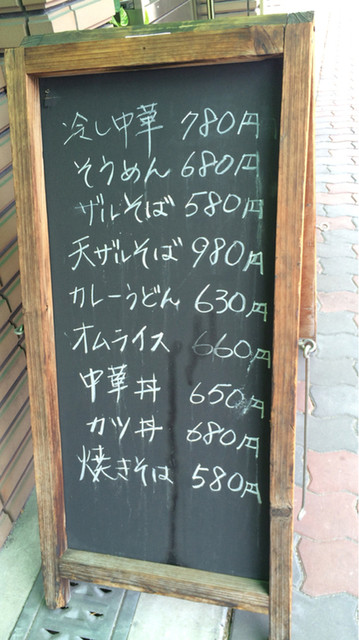 冷し中華 780円
そうめん 680円
ザルそば 580円
天ザルそば 980円
カレーうどん 630円
オムライス 660円
中華丼 650円
カツ丼 680円
焼きそば 580円